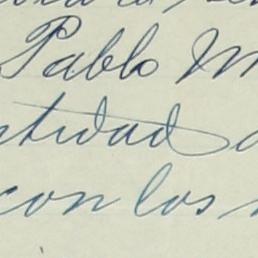 Pablo M
ntidad
con los